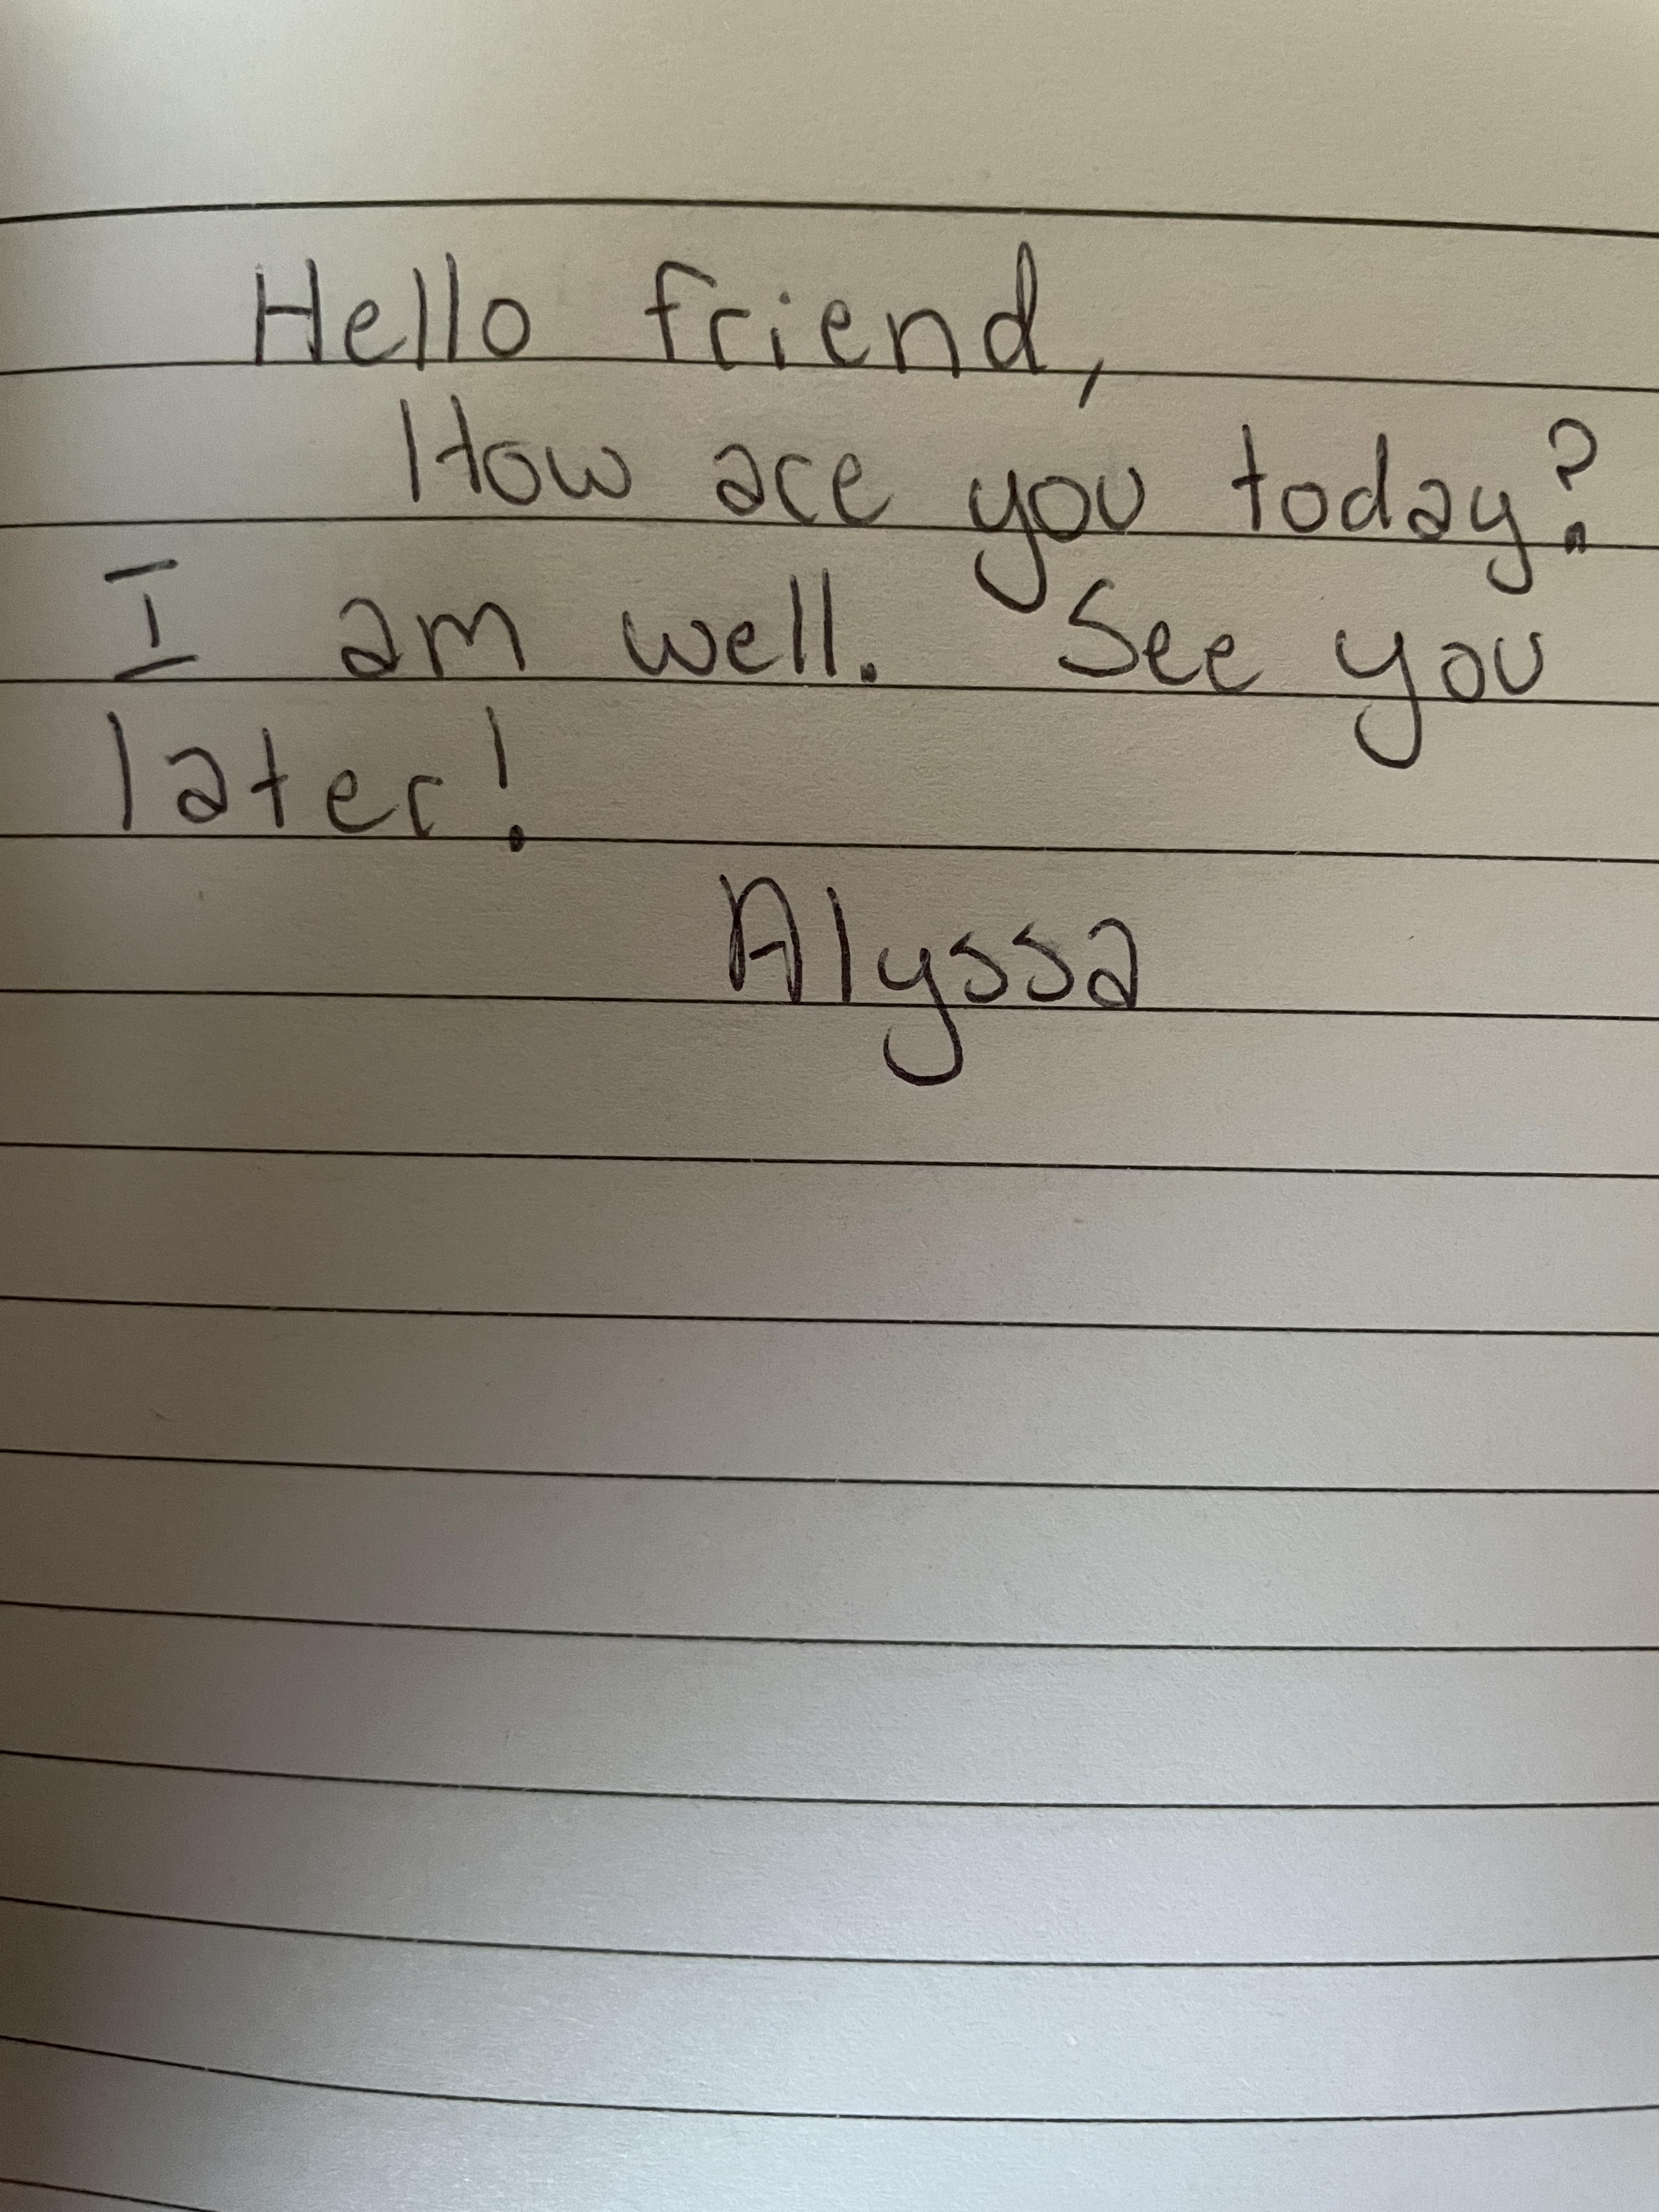 Hello friend,
How are you today?
I am well. See you
later!
Alyssa